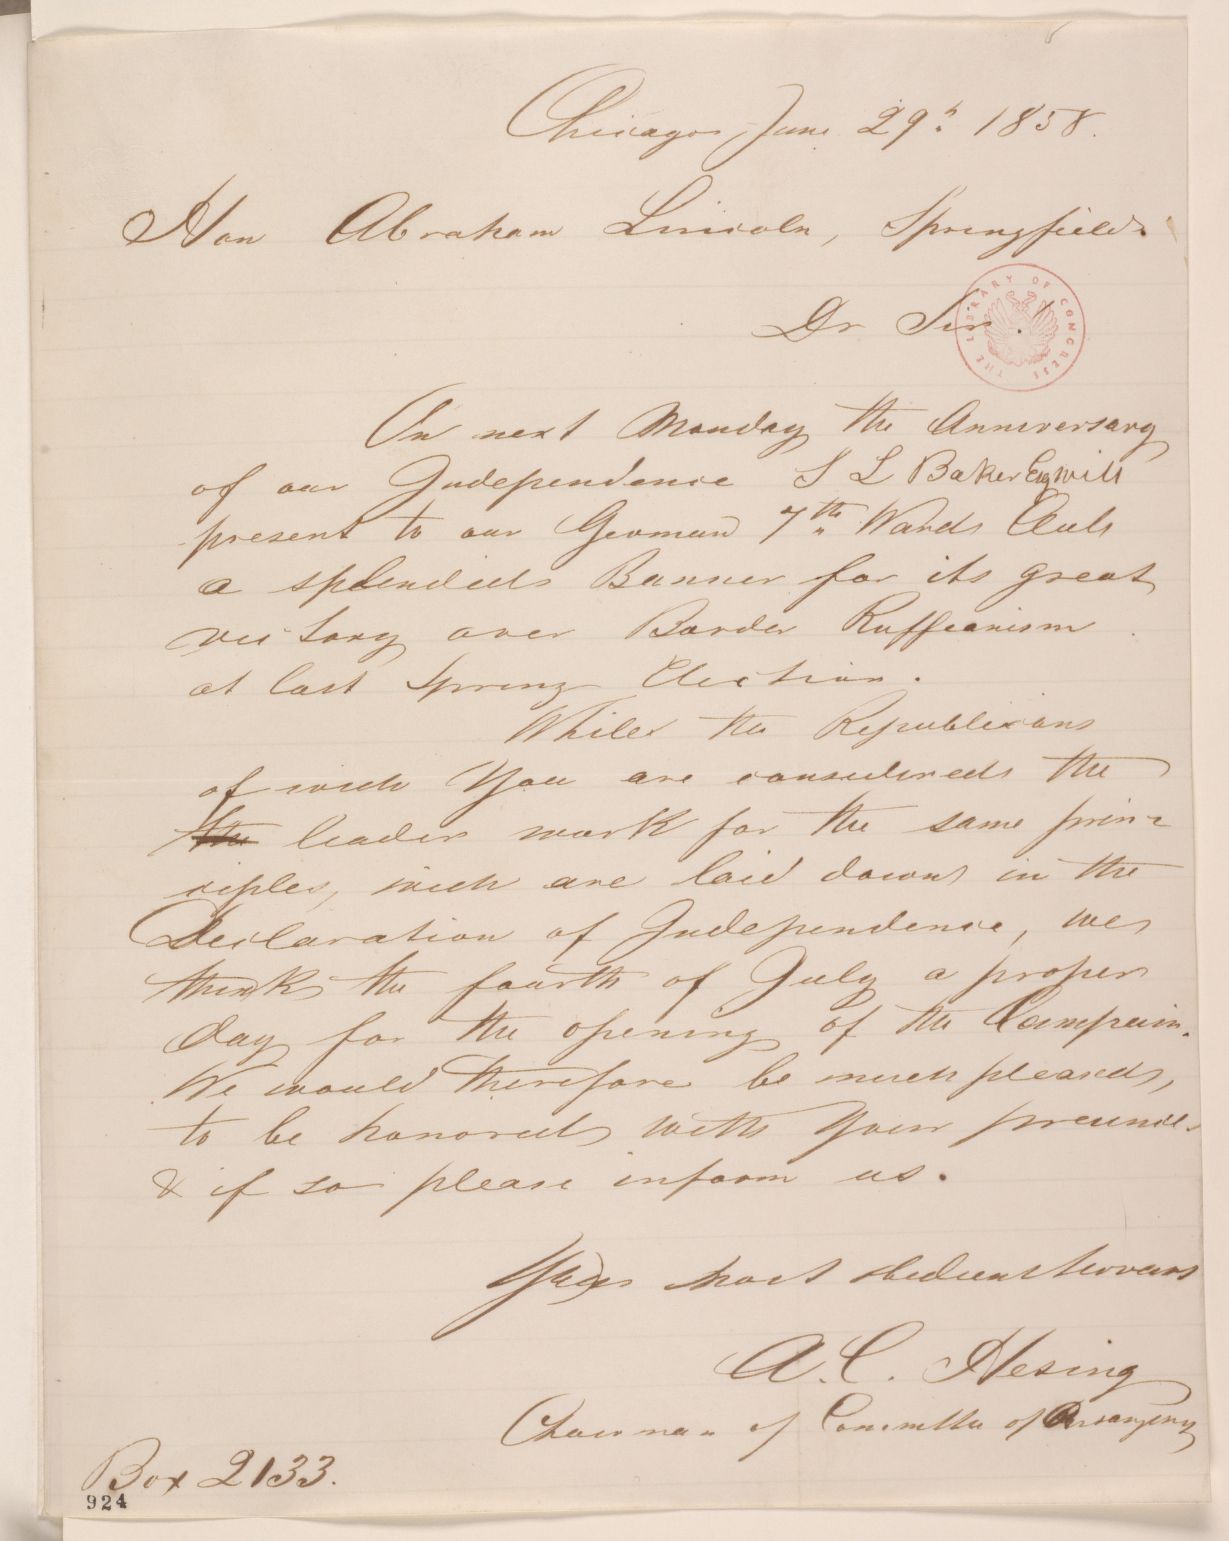 Chicago June 29th 1858.
Hon Abraham Lincoln, Springfield.
Dr Sir
THE LIBRARY OF CONGRESS
On next Monday the Anniversary
of our Independence S L Baker Esq will
present to our German 7th Wards Club
a splendid Banner for its great
victory over Border Ruffianism
at last Spring Election.
While the Republicans
of wich You are considered the
the leader work for the same prin-
ciples, wich are laid down in the
Declaration of Independence, we
think the fourth of July a proper
day for the opening of the Campain.
We would therefore be much pleased,
to be honored with Your presence
& if so please inform us.
Yours most obedient servant
A. C. Hesing
Chairman of Committee of
Box 2133.
924